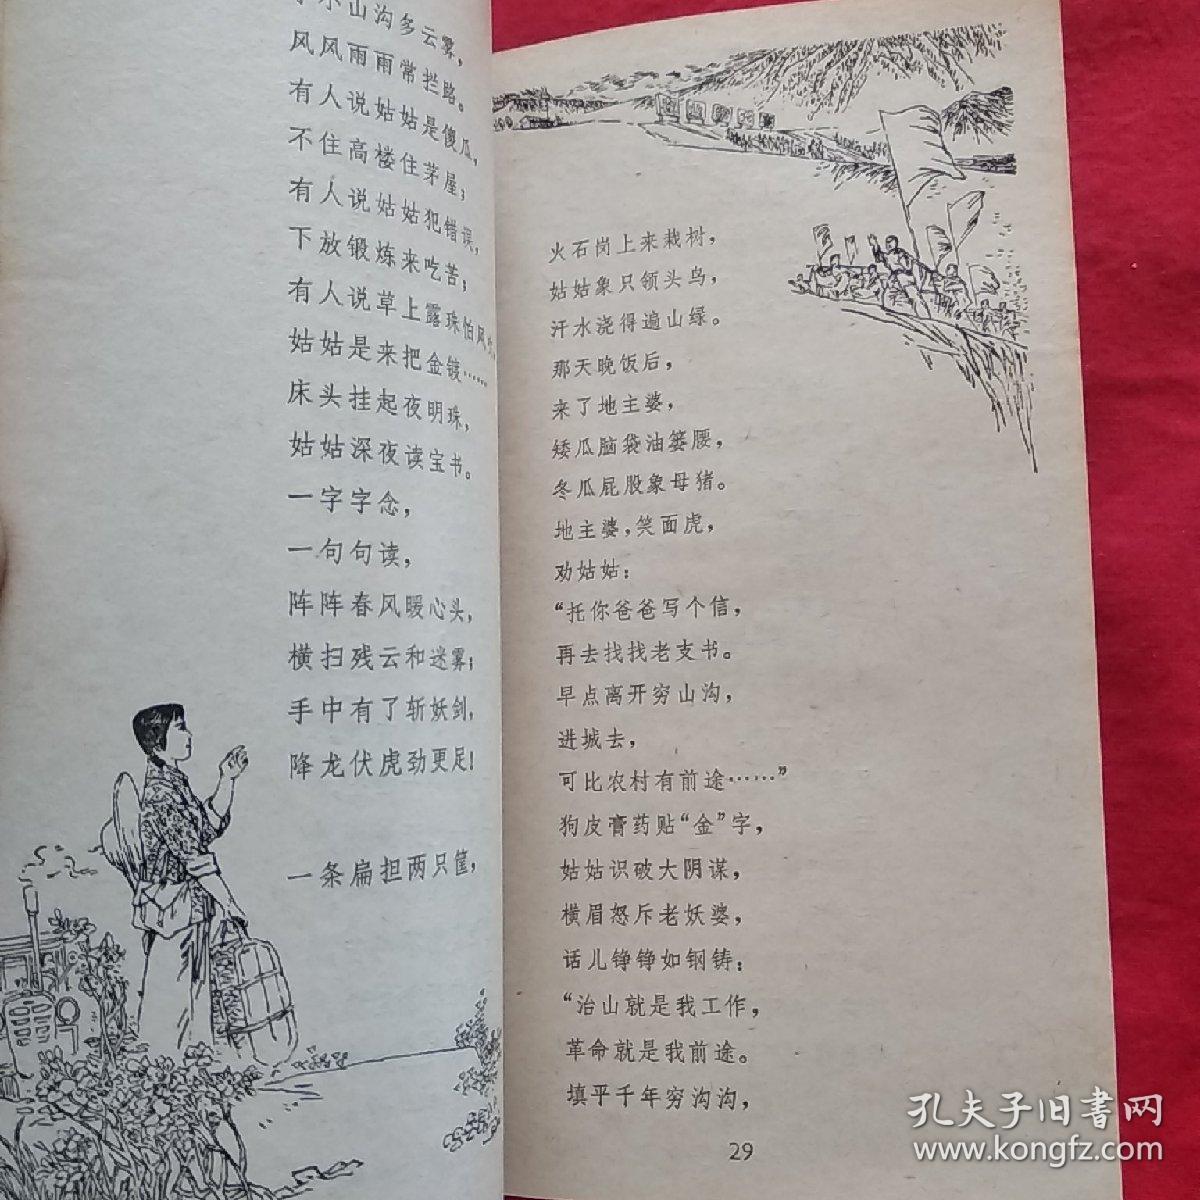 山沟多云雾，
风风雨雨常拦路。
有人说姑姑是傻瓜，
不住高楼住茅屋；
有人说姑姑犯错误，
下放锻炼来吃苦；
有人说草上露珠怕风
姑姑是来把金镀……
床头挂起夜明珠，
姑姑深夜读宝书。
一字字念，
一句句读，
阵阵春风暖心头，
横扫残云和迷雾；
手中有了斩妖剑，
降龙伏虎劲更足！
一条扁担两只筐，
火石岗上来栽树，
姑姑象只领头鸟，
汗水浇得遍山绿。
那天晚饭后，
来了地主婆，
矮瓜脑袋油篓腰，
冬瓜屁股象母猪。
地主婆，笑面虎，
劝姑姑：
“托你爸爸写个信，
再去找找老支书。
早点离开穷山沟，
进城去，
可比农村有前途……”
狗皮膏药贴“金”字，
姑姑识破大阴谋，
横眉怒斥老妖婆，
话儿铮铮如钢铸：
“治山就是我工作，
革命就是我前途。
填平千年穷沟沟，
29
孔夫子旧书网
www.kongfz.com